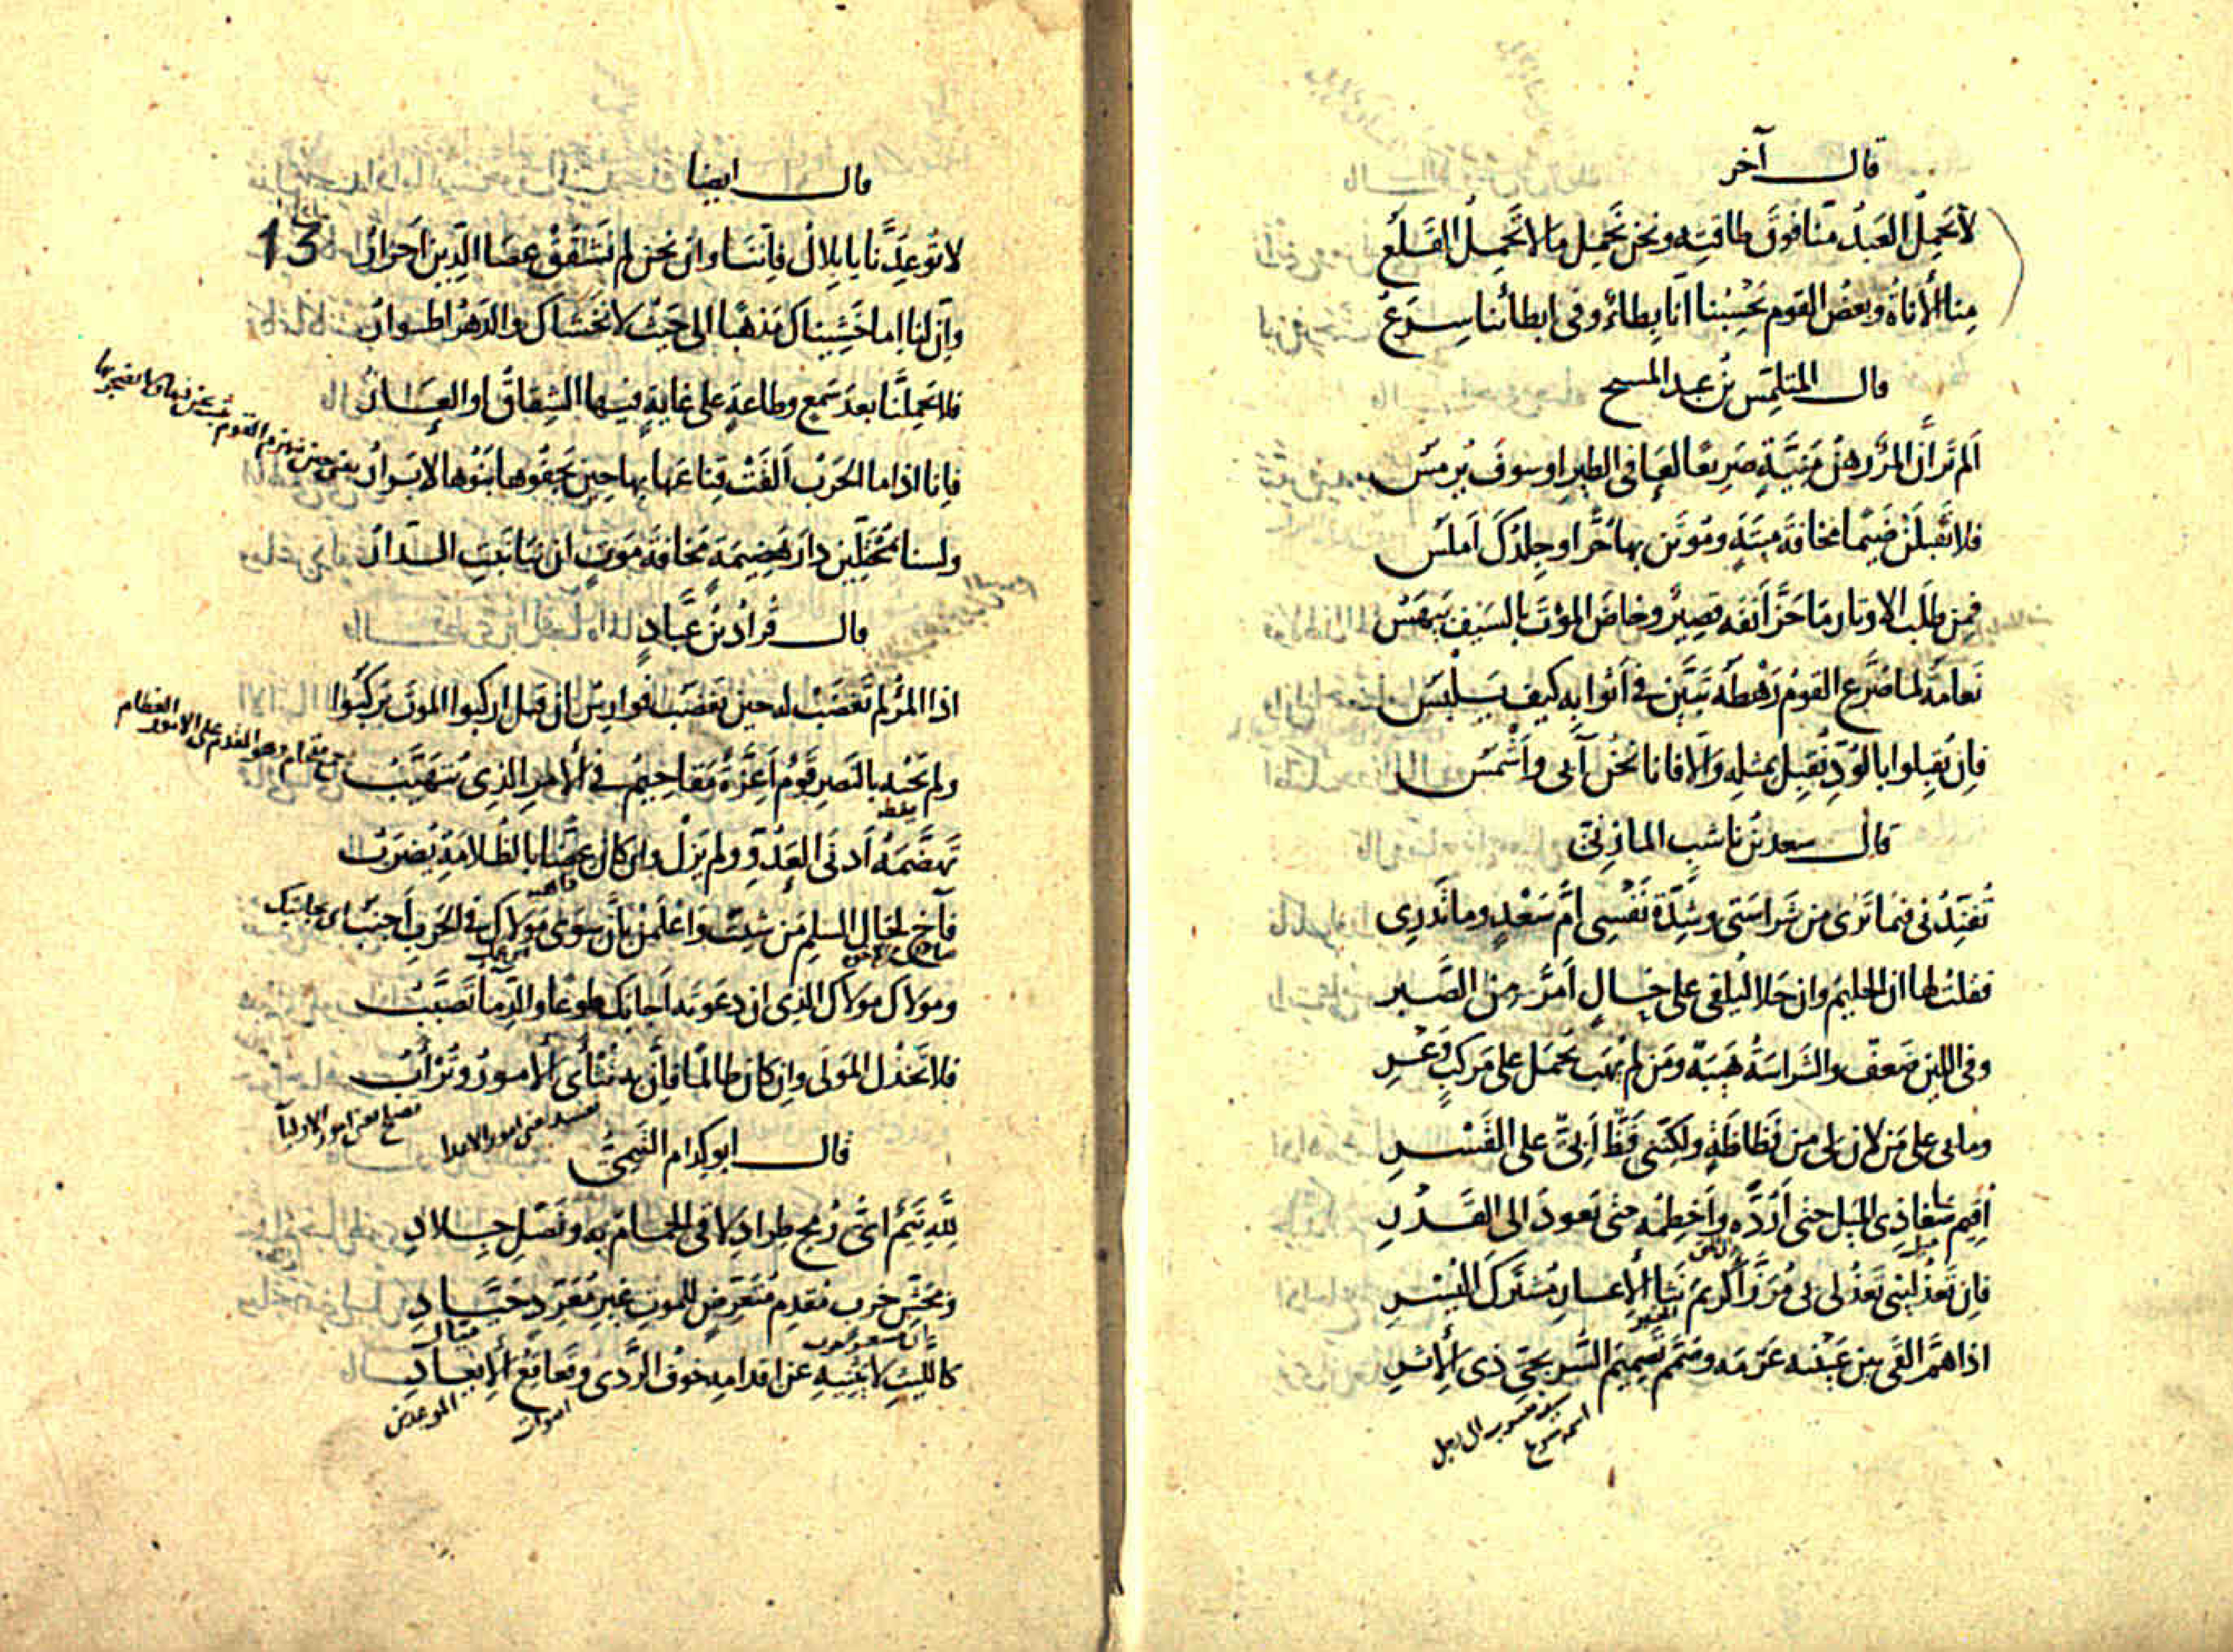 قال آخر
لا تَحمِلُ العَبدُ مِنّا فوقَ طاقتِه ونحن نَحمِل مَا لا تَحمِلُ القَلَعُ
مِنا الأناةُ وبعضُ القوم يَحْسِبُنا أنّا بِطاءٌ وفى ابطائنا سِرَعُ
قال المتلمِّس بن عبد المسيح
أَلم تَر أنّ المرءَ رهنُ مَنيَّةٍ صَرِيعًا لِعافى الطير او سوف يُرمَس
فلا تَقبلَن ضَيمًا مخافةَ ميتَةٍ ومُوتَن بها حُرًّا وجِلدُكَ أملَس
فمِن طلَب الاوتار مَا حَزَّ أنفَه قصِيرٌ وخاضَ المَوْتَ بالسَيف بَيهَسُ
نَعامَةُ لما صَرَّعَ القومُ رَهْطَه تَبيَّن في أثوابِه كيف يَلبَس
فإن تُقبِلوا بالوُدِّ نُقبِل بمثلِه وَالّا فانا نحْن آبى وأشْمَس
قال سعد بن ناشب المازنى
تُفنِّدُنى فيما تَرى من شراستى وشِدّة نَفْسى أمُّ سَعْدٍ وما تَدرِى
فقلت لها ان الحليم وان حَلا لَيُلقى على حالٍ أمرَّ من الصَّبر
وفى اللين ضَعفٌ والشراسةُ هَيبَة ومَن لم يُهَب يُحمَل على مَركبٍ وَعْر
وما بى على مَن لانَ لى من فَظاظَةٍ ولكِنّنى فَظٌّ أبىٌّ على القَسْر
أقيم صَغا ذِى المَيل حتى أرُدَّه وأَخطِمُه حتى يَعودَ الى القَدْر
فان تَعذُلينى تَعذُلى بى مُرَزَّأ كريمَ نَثا الاعسار مُشتَرَكَ اليُسْر
اذا هَمَّ ألقى بين عينيه عَزمَه وصَمَّم تصميمَ السُّرَيجىّ ذى الأثر
سيف منسوب الى رجل
اسمه سريج
قال ايضا
13
لا تُوعِدَنّا يا بِلالُ فإنّنا وان نحن لم نَشقُقْ عصَا الدِّين أحرارُ
وإنّ لنا إما خَشِيناك مَذهَبا الى حيثُ لا نخشاك والدهرُ اطوارُ
فلا تَحمِلَنّا بعدَ سَمعٍ وطاعةٍ على غايةٍ فيها الشِقاقُ او العارُ
فانا اذا ما الحَرْبُ ألقَتْ قِناعَها بها حِين يَجفُوها بَنُوها لابرارُ
ولسنا بمُحْتلّين دارَ هَضِيمَةٍ مخافةَ مَوتٍ ان بنا نَبَتِ الدارُ
قال قُرادُ بن عَبّادٍ
اذا المرءُ لم تَغضَبْ له حين يَغضَب فوارِسُ ان قيل اركبوا الموتَ يَركَبُوا
ولم يَحْبُه بالنَصرِ قومٌ أعِزَّةٌ مَقاحِيمُ في الأمر الذى يُتَهَيَّبُ
جمع مقحام وهو المقدم على الامور العظام
تهضَّمَه أدنى العَدُوِّ ولم يَزَل وان كان عِضًّا بالظُلامَةِ يُضرَبُ
فآخِ لِحال السلم مَن شِئتَ واعْلَمَنْ بأنّ سِوَى مَولاك في الحَرب أجنَبُ
ومَولاك مولاك الذى ان دعوتَه أجابك طوعًا والدِّمآ تَصَبَّبُ
فلا تَخذُلِ المَولى وإن كان ظالمًا فإنّ به تُثْأى الأمورُ وتُرْأبُ
قال ابو كدام التيمى
لِلّه تَيمٌ اىُّ رُمحِ طِرادِ لاقى الحِمامَ به ونَصْلِ جِلادِ
ومِحَشِّ حَربٍ مُقدِمٍ مُتَعَرِّضٍ للموتِ غيرِ مُعَرِّدٍ حَيّادِ
كالليثِ لا يَثنِيه عن اقدامِه خوفُ الرَّدى وقَعاقِعُ الإيعادِ
اصوات
الموعدين